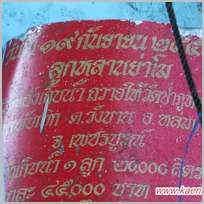 ๑๙ กันยายน ๒๕๔
ลูกหลานย่าโม
ถังเก็บน้ำ ถวายให้วัดซำ
ต. วังบาน อ. หล่ม
จ. เพชรบูรณ์
เก็บน้ำ ๑ ลูก ๒๐,๐๐๐ ลิตร
ละ ๔๕,๐๐๐ บาท
www.kaen